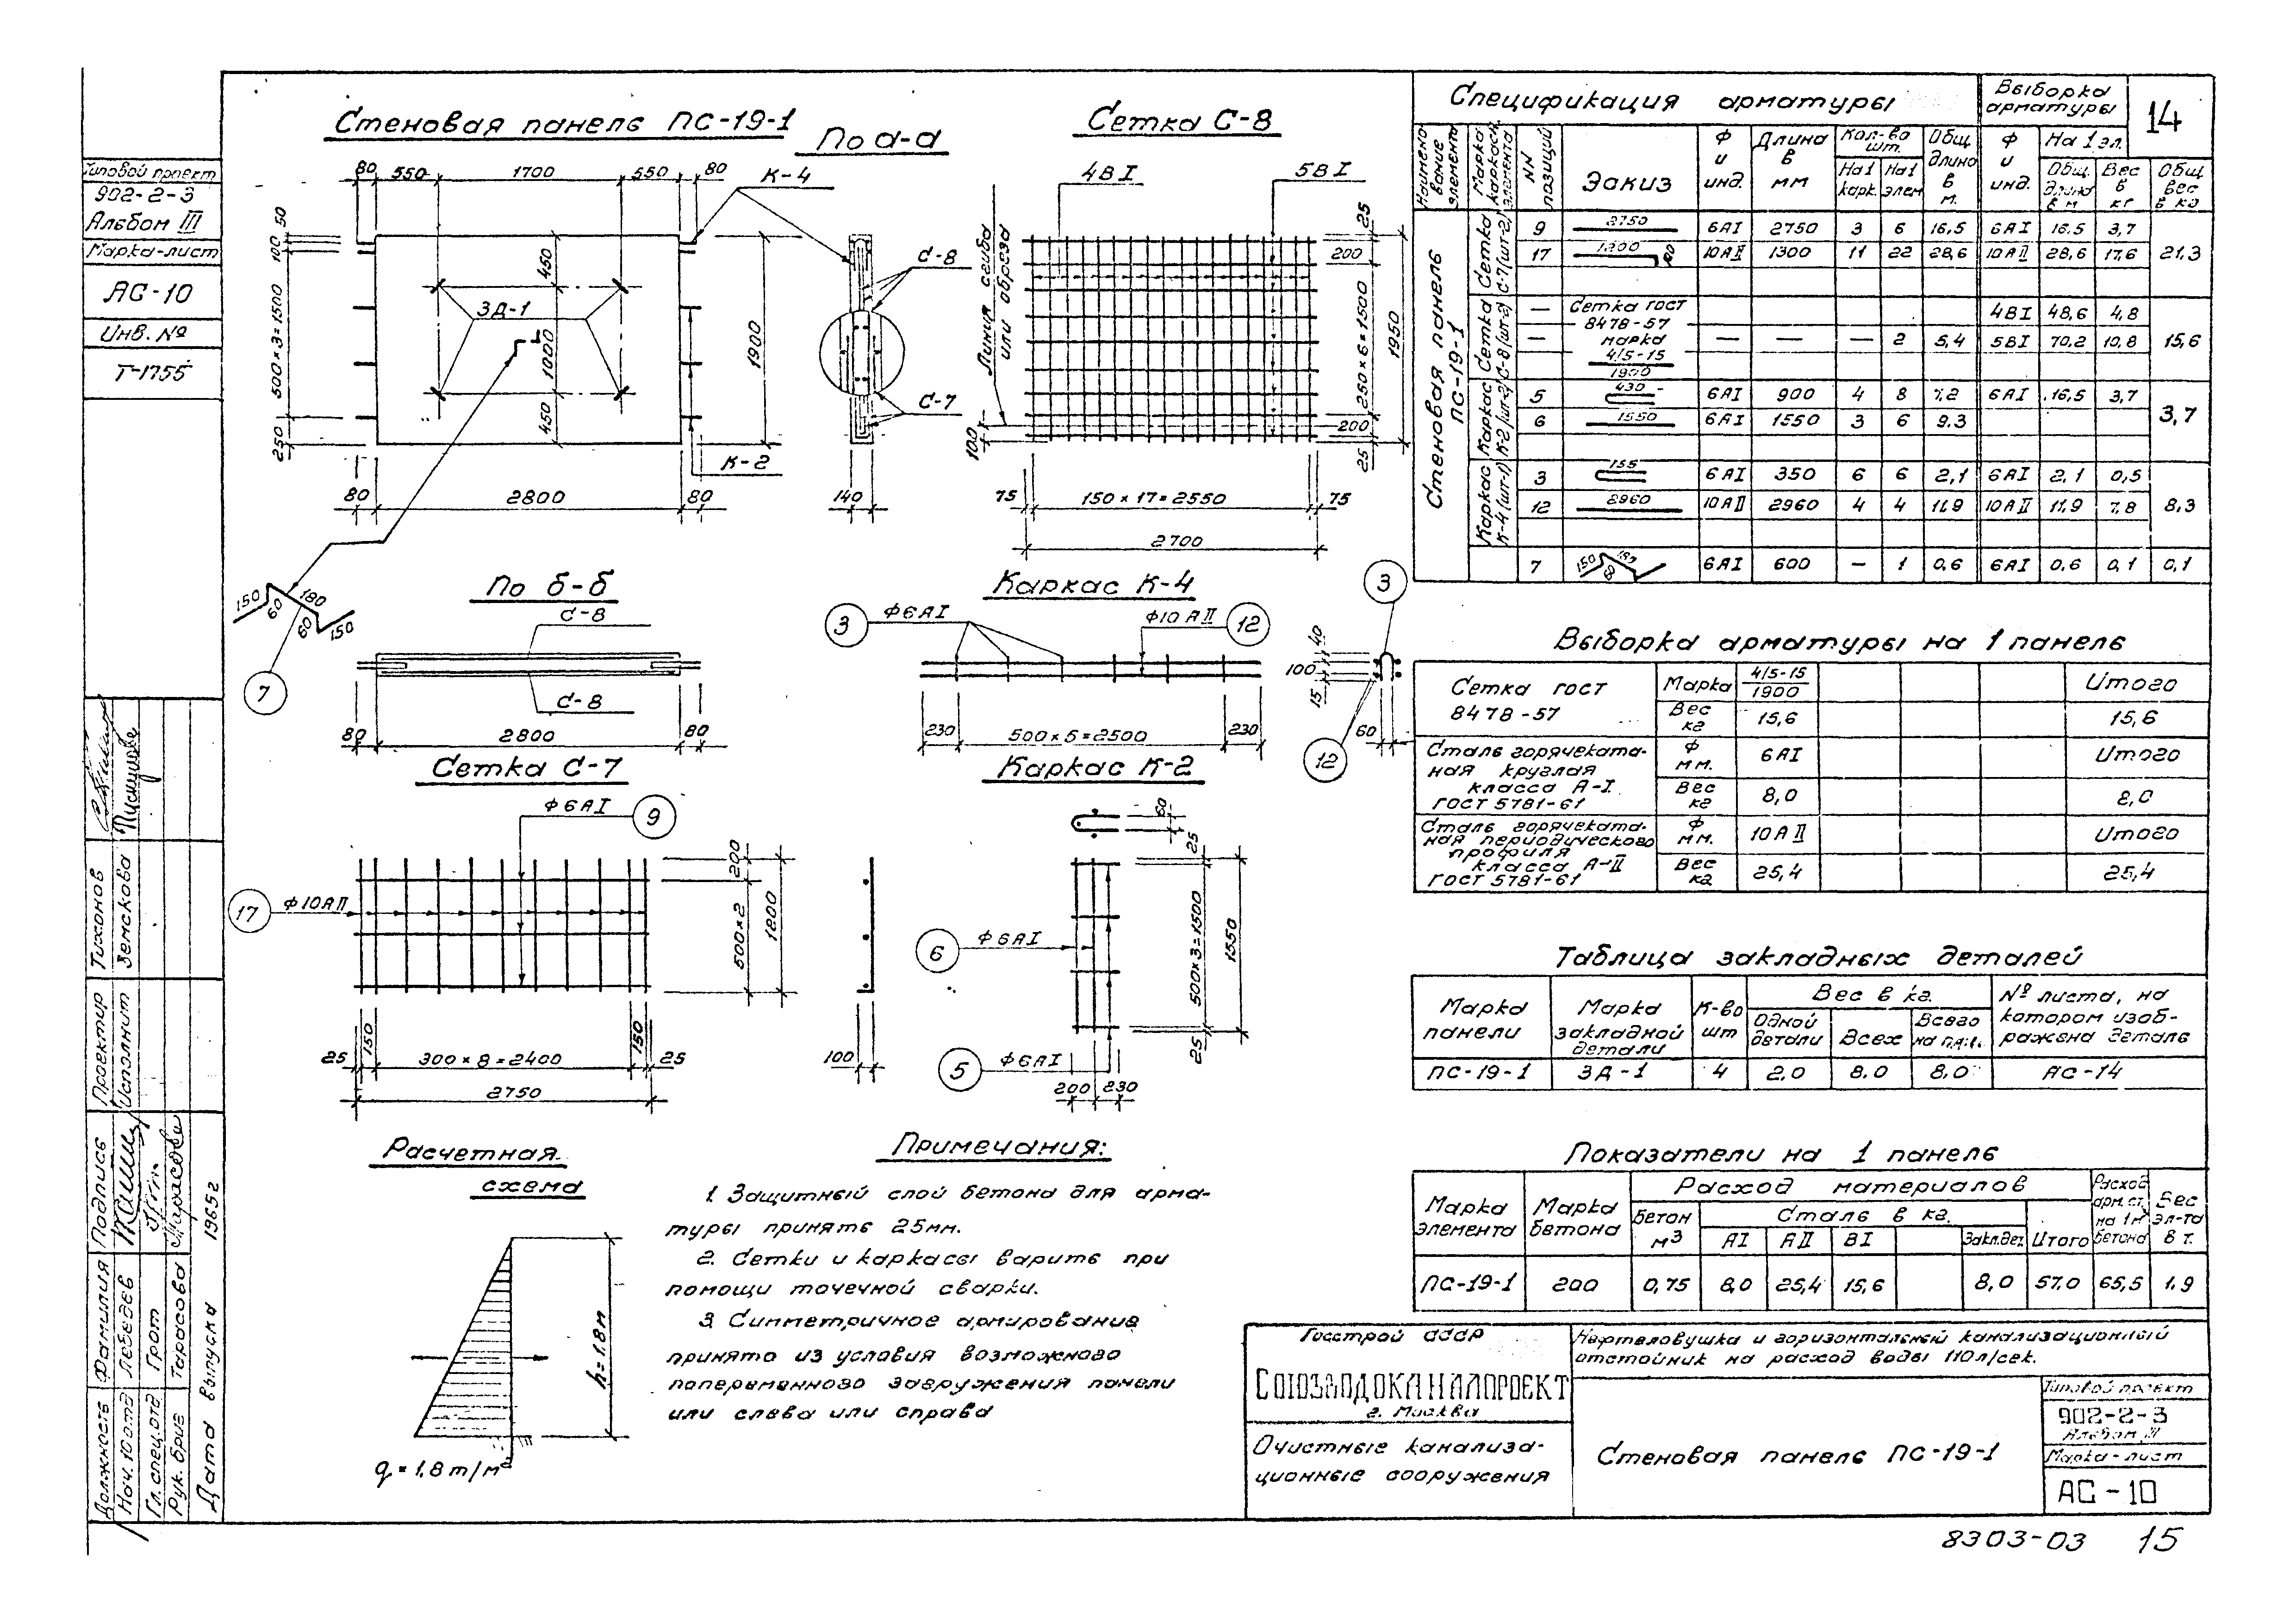 Типовой проект
902-2-3
Альбом III
Марка-лист
АС-10
Инв. №
Т-1755
Стеновая панель ПС-19-1
По а-а
Сетка С-8
80 550 1700 550 80
К-4
50
100
500×3=1500
250
450
ЗД-1
1000
450
1900
К-2
80 2800 80
С-8
С-7
140
Линия сгиба
или обреза
4ВI
5ВI
25
200
250×6=1500
1950
200
100
25
75 150×17=2550 75
2700
150 60 180 60 150
7
По б-б
С-8
С-8
80 2800 80
Каркас К-4
3 Ф6АI
Ф10АII 12
3
40
100
15
230 500×5=2500 230
60
12
Сетка С-7
Ф6АI 9
17 Ф10АII
200
500×2
1200
25 150 300×8=2400 150 25
2750
100
Каркас К-2
60
25
6 Ф6АI
500×3=1500
1550
25
5 Ф6АI
200 230
Расчетная
схема
h=1.8м
q=1.8т/м²
Примечания:
1. Защитный слой бетона для арма-
туры принять 25мм.
2. Сетки и каркасы варить при
помощи точечной сварки.
3. Симметричное армирование
принято из условия возможного
попеременного загружения панели
или слева или справа
Спецификация арматуры
Выборка
арматуры
14
Наимено
вание
элемента
Марка
каркаса
элемента
NN
позиций
Эскиз
Ф
и
инд.
Длина
в
мм
Кол-во
шт.
На 1
карк.
На 1
элем
Общ.
длина
в
м.
Ф
и
инд.
На 1 эл.
Общ.
длина
в м
Вес
в
кг
Общ
вес
в кг
Стеновая панель
ПС-19-1
Сетка
С-7 (шт-2)
9 2750 6АI 2750 3 6 16,5 6АI 16.5 3,7
17 1200 10АII 1300 11 22 28,6 10АII 28,6 17,6 21,3
Сетка
С-8 (шт-2)
— Сетка гост 4ВI 48,6 4,8
8478-57
— марка — — — 2 5,4 5ВI 70,2 10,8 15,6
4/5-15
1900
Каркас
К-2 (шт-2)
5 430 6АI 900 4 8 7,2 6АI 16,5 3,7
6 1550 6АI 1550 3 6 9.3 3,7
Каркас
К-4 (шт-1)
3 155 6АI 350 6 6 2,1 6АI 2,1 0,5
12 2960 10АII 2960 4 4 11,9 10АII 11,9 7,8 8,3
7 150 60 180 6АI 600 — 1 0,6 6АI 0,6 0,1 0,1
Выборка арматуры на 1 панель
Сетка гост
8478-57
Марка 4/5-15
1900
Итого
Вес
кг
15,6 15,6
Сталь горячеката-
ная круглая
класса А-I
ГОСТ 5781-61
Ф
мм.
6АI Итого
Вес
кг
8,0 8,0
Сталь горячеката-
ная периодического
профиля
класса А-II
ГОСТ 5781-61
Ф
мм.
10АII Итого
Вес
кг
25,4 25,4
Таблица закладных деталей
Марка
панели
Марка
закладной
детали
К-во
шт
Вес в кг.
Одной
детали
Всех
Всего
№ листа, на
котором изоб-
ражена деталь
ПС-19-1 ЗД-1 4 2.0 8.0 8,0 АС-14
Показатели на 1 панель
Марка
элемента
Марка
бетона
Расход материалов
Бетон
м³
Сталь в кг.
АI АII ВI Закл.дет. Итого
Расход
арм.ст.
на 1м³
бетона
Вес
эл-та
в т.
ПС-19-1 200 0,75 8,0 25,4 15,6 8,0 57.0 65,5 1.9
Госстрой СССР
Союзводоканалпроект
г. Москва
Очистные канализа-
ционные сооружения
Нефтеловушка и горизонтальный канализационный
отстойник на расход воды 110л/сек.
Стеновая панель ПС-19-1
Типовой проект
902-2-3
Альбом III
Марка-лист
АС-10
8303-03 15
Проектир Тихонов
Исполнит Земскова
Должность Фамилия Подпись
Нач. 10 отд Лебедев
Гл.спец.отд Грот
Рук. бриг Тарасова
Дата выпуска 1965г